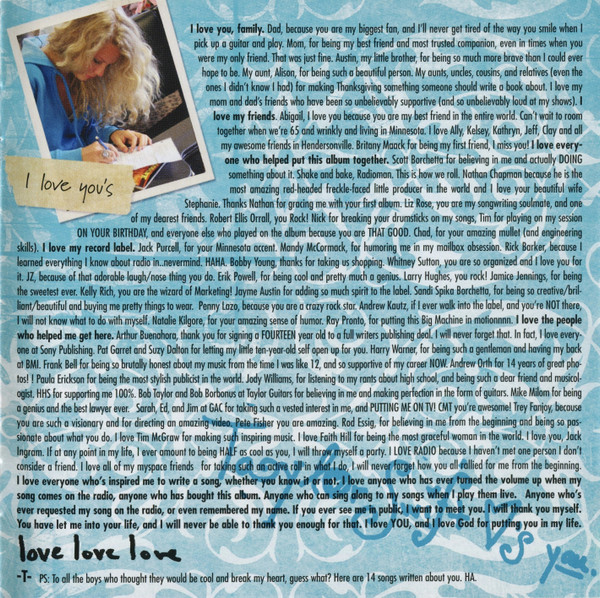 I love you's
I love you, family. Dad, because you are my biggest fan, and I'll never get tired of the way you smile when I
pick up a guitar and play. Mom, for being my best friend and most trusted companion, even in times when you
were my only friend. That was just fine. Austin, my little brother, for being so much more brave than I could ever
hope to be. My aunt, Alison, for being such a beautiful person. My aunts, uncles, cousins, and relatives (even the
ones I didn't know I had) for making Thanksgiving something someone should write a book about. I love my
mom and dad's friends who have been so unbelievably supportive (and so unbelievably loud at my shows). I
love my friends. Abigail, I love you because you are my best friend in the entire world. Can't wait to room
together when we're 65 and wrinkly and living in Minnesota. I love Ally, Kelsey, Kathryn, Jeff, Clay and all
my awesome friends in Hendersonville. Britany Maack for being my first friend, I miss you! I love every-
one who helped put this album together. Scott Borchetta for believing in me and actually DOING
something about it. Shake and bake, Radioman. This is how we roll. Nathan Chapman because he is the
most amazing red-headed freckle-faced little producer in the world and I love your beautiful wife
Stephanie. Thanks Nathan for gracing me with your first album. Liz Rose, you are my songwriting soulmate, and one
of my dearest friends. Robert Ellis Orrall, you Rock! Nick for breaking your drumsticks on my songs, Tim for playing on my session
ON YOUR BIRTHDAY, and everyone else who played on the album because you are THAT GOOD. Chad, for your amazing mullet (and engineering
skills). I love my record label. Jack Purcell, for your Minnesota accent. Mandy McCormack, for humoring me in my mailbox obsession. Rick Barker, because I
learned everything I know about radio in..nevermind, HAHA. Bobby Young, thanks for taking us shopping. Whitney Sutton, you are so organized and I love you for
it. JZ, because of that adorable laugh/nose thing you do. Erik Powell, for being cool and pretty much a genius. Larry Hughes, you rock! Jamice Jennings, for being
the sweetest ever. Kelly Rich, you are the wizard of Marketing! Jayme Austin for adding so much spirit to the label. Sandi Spika Borchetta, for being so creative/bril-
liant/beautiful and buying me pretty things to wear. Penny Lazo, because you are a crazy rock star. Andrew Kautz, if I ever walk into the label, and you're NOT there,
I will not know what to do with myself. Natalie Kilgore, for your amazing sense of humor. Ray Pronto, for putting this Big Machine in motionnnn. I love the people
who helped me get here. Arthur Buenahora, thank you for signing a FOURTEEN year old to a full writers publishing deal. I will never forget that. In fact, I love every-
one at Sony Publishing. Pat Garret and Suzy Dalton for letting my little ten-year-old self open up for you. Harry Warner, for being such a gentleman and having my back
at BMI. Frank Bell for being so brutally honest about my music from the time I was like 12, and so supportive of my career NOW. Andrew Orth for 14 years of great pho-
tos! ! Paula Erickson for being the most stylish publicist in the world. Jody Williams, for listening to my rants about high school, and being such a dear friend and musicol-
ogist. HHS for supporting me 100%. Bob Taylor and Bob Borbonus at Taylor Guitars for believing in me and making perfection in the form of guitars. Mike Milom for being
a genius and the best lawyer ever. Sarah, Ed, and Jim at GAC for taking such a vested interest in me, and PUTTING ME ON TV! CMT you're awesome! Trey Fanjoy, because
you are such a visionary and for directing an amazing video. Pete Fisher you are amazing. Rod Essig, for believing in me from the beginning and being so pas-
sionate about what you do. I love Tim McGraw for making such inspiring music. I love Faith Hill for being the most graceful woman in the world. I love you, Jack
Ingram. If at any point in my life, I ever amount to being HALF as cool as you, I will throw myself a party. I LOVE RADIO because I haven't met one person I don't
consider a friend. I love all of my myspace friends for taking such an active interest in what I do, I will never forget how you all rallied for me from the beginning.
I love everyone who's inspired me to write a song, whether you know it or not. I love anyone who has ever turned the volume up when my
song comes on the radio, anyone who has bought this album. Anyone who can sing along to my songs when I play them live. Anyone who's
ever requested my song on the radio, or even remembered my name. If you ever see me in public, I want to meet you. I will thank you myself.
You have let me into your life, and I will never be able to thank you enough for that. I love YOU, and I love God for putting you in my life.
love love love
-T- PS: To all the boys who thought they would be cool and break my heart, guess what? Here are 14 songs written about you. HA.
you.